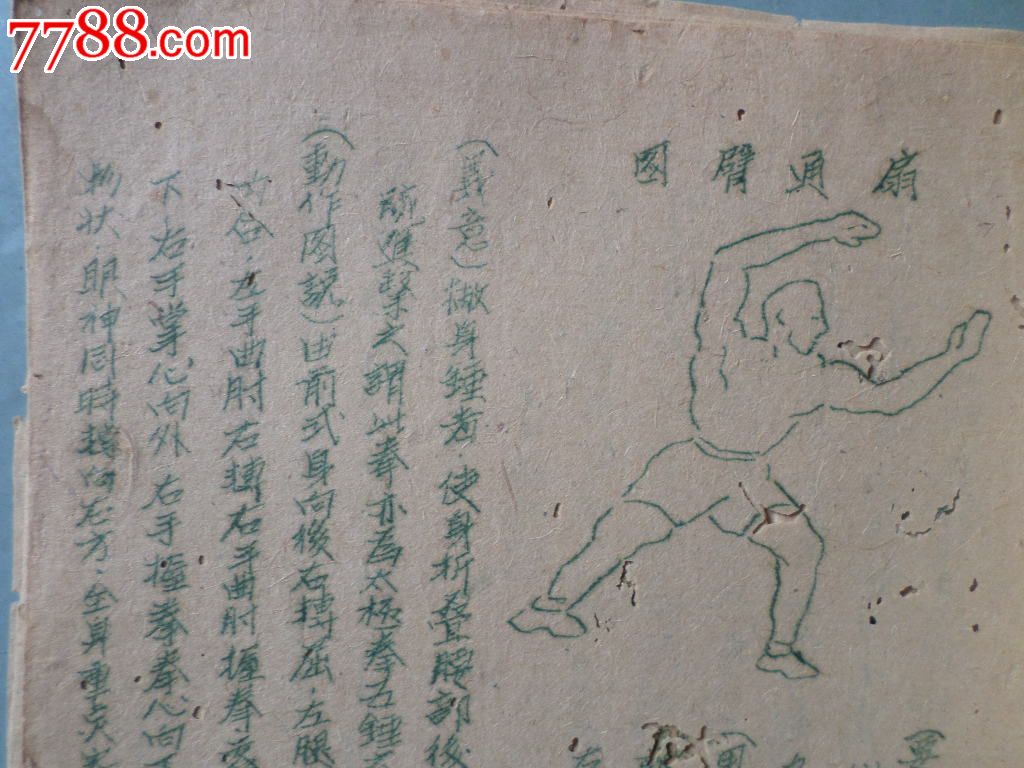 7788.com
扇通臂図
(義意)撇身錘者.使身折疊腰部後
進擊之謂此拳亦為太極拳五錘之
(動作図說)由前式身向後右轉屈.左腿
左手曲肘右轉右手曲肘握拳
下右手掌心向外右手握拳拳心向下
状.眼神同時轉向右方.全身重点